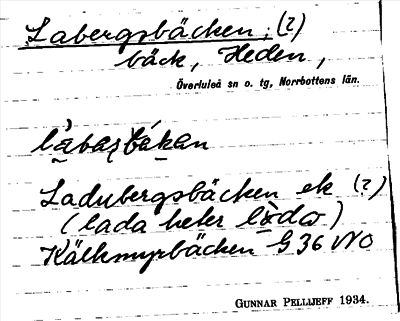 Labergsbäcken, (?)
bäck, Heden,
Överluleå sn o. tg, Norrbottens län.
Ladubergsbäcken ek (?)
(lada heter lòda)
Kälkmyrbäcken G 36 NO
GUNNAR PELLIJEFF 1934.